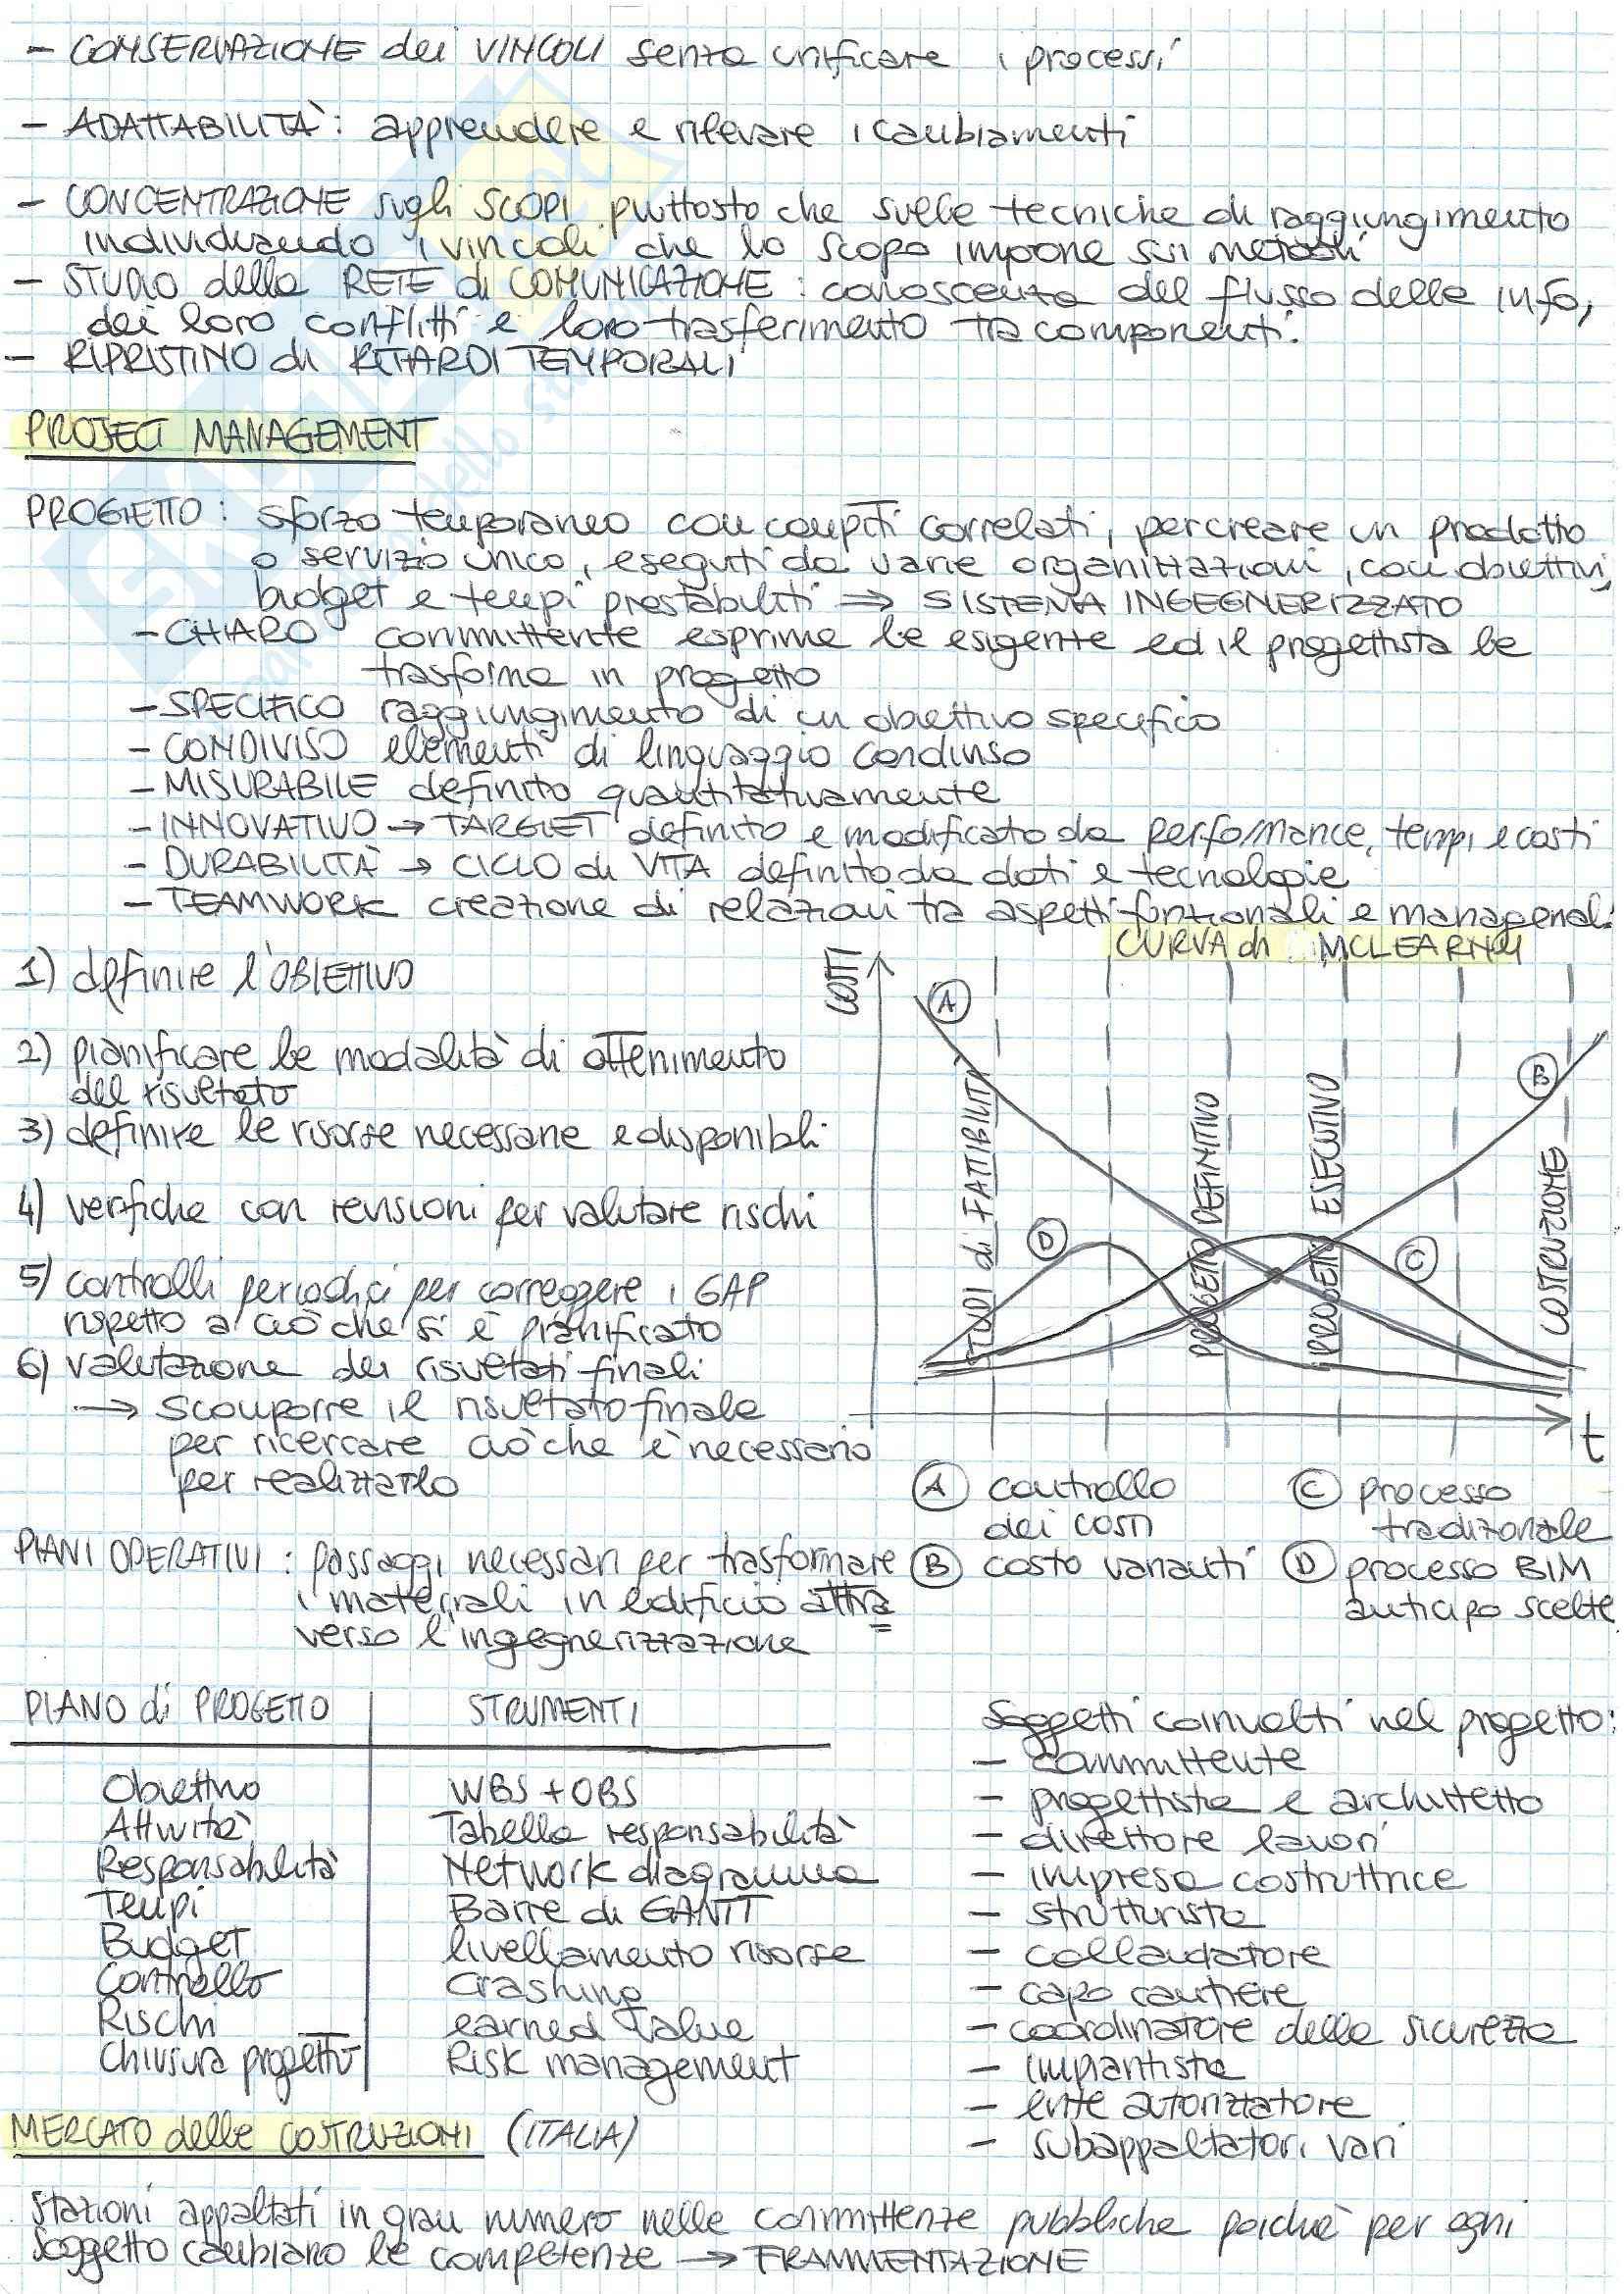 - CONSERVAZIONE dei VINCOLI senza unificare i processi
- ADATTABILITÀ: apprendere e rilevare i cambiamenti
- CONCENTRAZIONE sugli SCOPI piuttosto che sulle tecniche di raggiungimento
individuando i vincoli che lo scopo impone sui metodi
- STUDIO della RETE di COMUNICAZIONE: conoscenza del flusso delle info,
dei loro conflitti e loro trasferimento tra componenti.
- RIPRISTINO di RITARDI TEMPORALI
PROJECT MANAGEMENT
PROGETTO: sforzo temporaneo con compiti correlati, per creare un prodotto
o servizio unico, eseguiti da varie organizzazioni, con obiettivi,
budget e tempi prestabiliti => SISTEMA INGEGNERIZZATO
- CHIARO committente esprime le esigenze ed il progettista le
trasforma in progetto
- SPECIFICO raggiungimento di un obiettivo specifico
- CONDIVISO elementi di linguaggio condiviso
- MISURABILE definito quantitativamente
- INNOVATIVO → TARGET definito e modificato da performance, tempi e costi
- DURABILITÀ → CICLO di VITA definito da dati e tecnologie
- TEAMWORK creazione di relazioni tra aspetti funzionali e manageriali
1) definire l'OBIETTIVO
2) pianificare le modalità di ottenimento
del risultato
3) definire le risorse necessarie e disponibili
4) verifiche con revisioni per valutare rischi
5) controlli periodici per correggere i GAP
rispetto a ciò che si è pianificato
6) valutazione dei risultati finali
→ scomporre il risultato finale
per ricercare ciò che è necessario
per realizzarlo
CURVA di MCLEARNY
COSTI
A
B
C
D
STUDI di FATTIBILITÀ
PROGETTO DEFINITIVO
PROGETTO ESECUTIVO
COSTRUZIONE
t
A controllo
dei costi
B costo varianti
C processo
tradizionale
D processo BIM
anticipo scelte
PIANI OPERATIVI: passaggi necessari per trasformare
i materiali in edificio attra
verso l'ingegnerizzazione
PIANO di PROGETTO STRUMENTI
Obiettivo WBS + OBS
Attività Tabella responsabilità
Responsabilità Network diagramma
Tempi Barre di GANTT
Budget livellamento risorse
Controllo Crashing
Rischi earned value
Chiusura progetto Risk management
Soggetti coinvolti nel progetto:
- committente
- progettista e architetto
- direttore lavori
- impresa costruttrice
- strutturista
- collaudatore
- capo cantiere
- coordinatore della sicurezza
- impiantista
- ente autorizzatore
- subappaltatori vari
MERCATO delle COSTRUZIONI (ITALIA)
Stazioni appaltati in gran numero nelle committenze pubbliche poiché per ogni
soggetto cambiano le competenze → FRAMMENTAZIONE